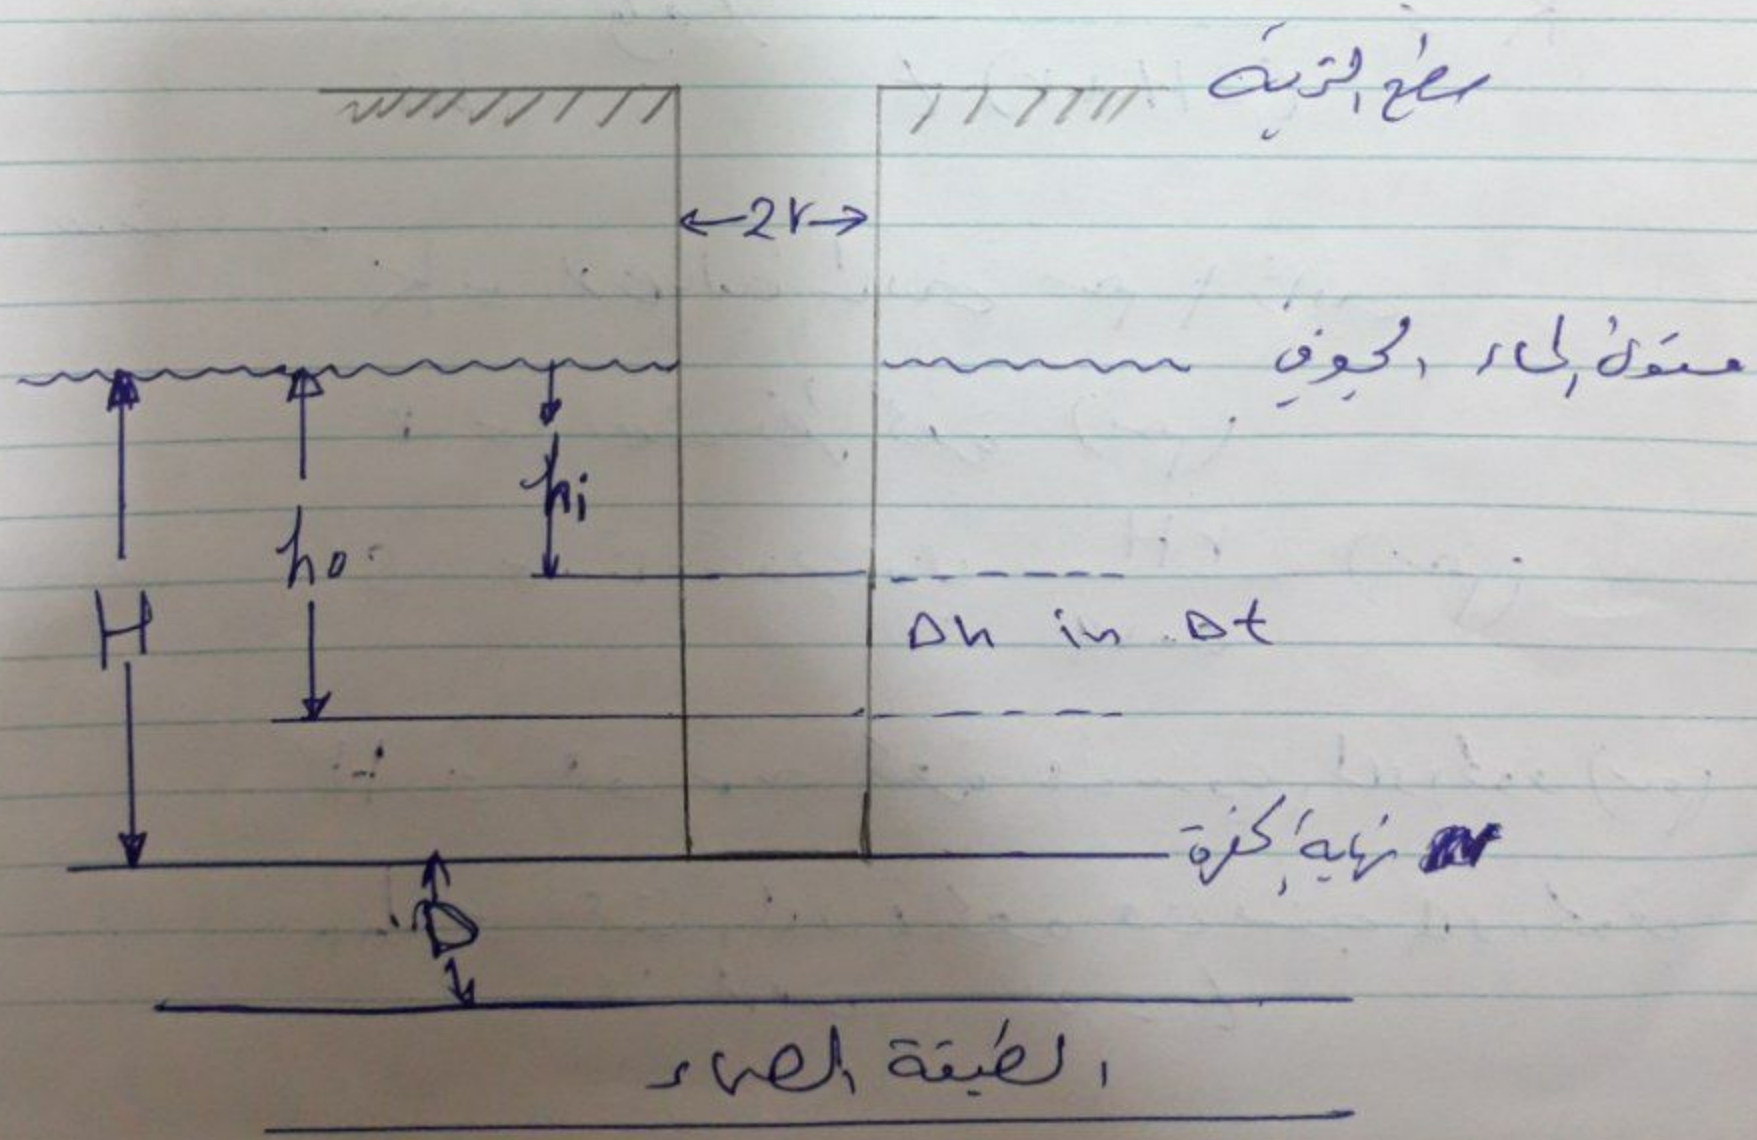 سطح التربة
2r
مستوى الماء الجوفي
hi
ho
H
Δh in Δt
نهاية الحفرة
D
الطبقة الصماء